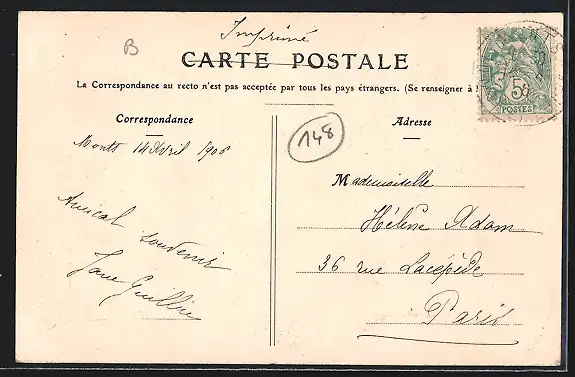 Imprimé
B
CARTE POSTALE
La Correspondance au recto n'est pas acceptée par tous les pays étrangers. (Se renseigner à
Correspondance
Adresse
148
Monts 14 Avril 1906
Mademoiselle
Amical souvenir
Hélène Adam
36 rue Lacépède
Paris
5c
POSTES